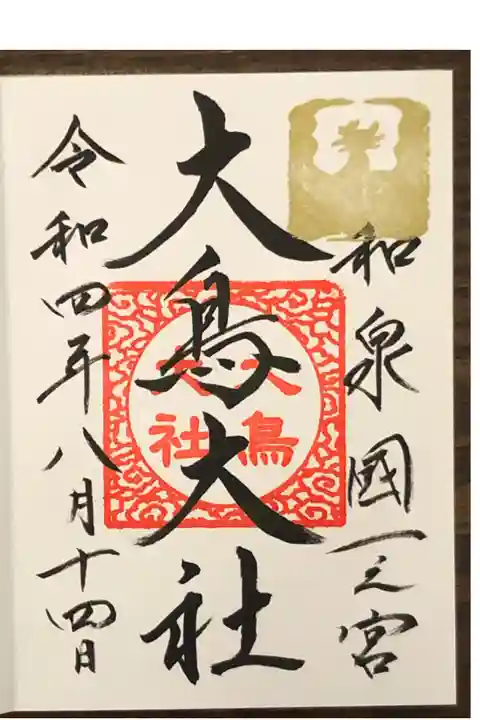 和泉國一之宮
大鳥大社
大鳥
大社
令和四年八月十四日